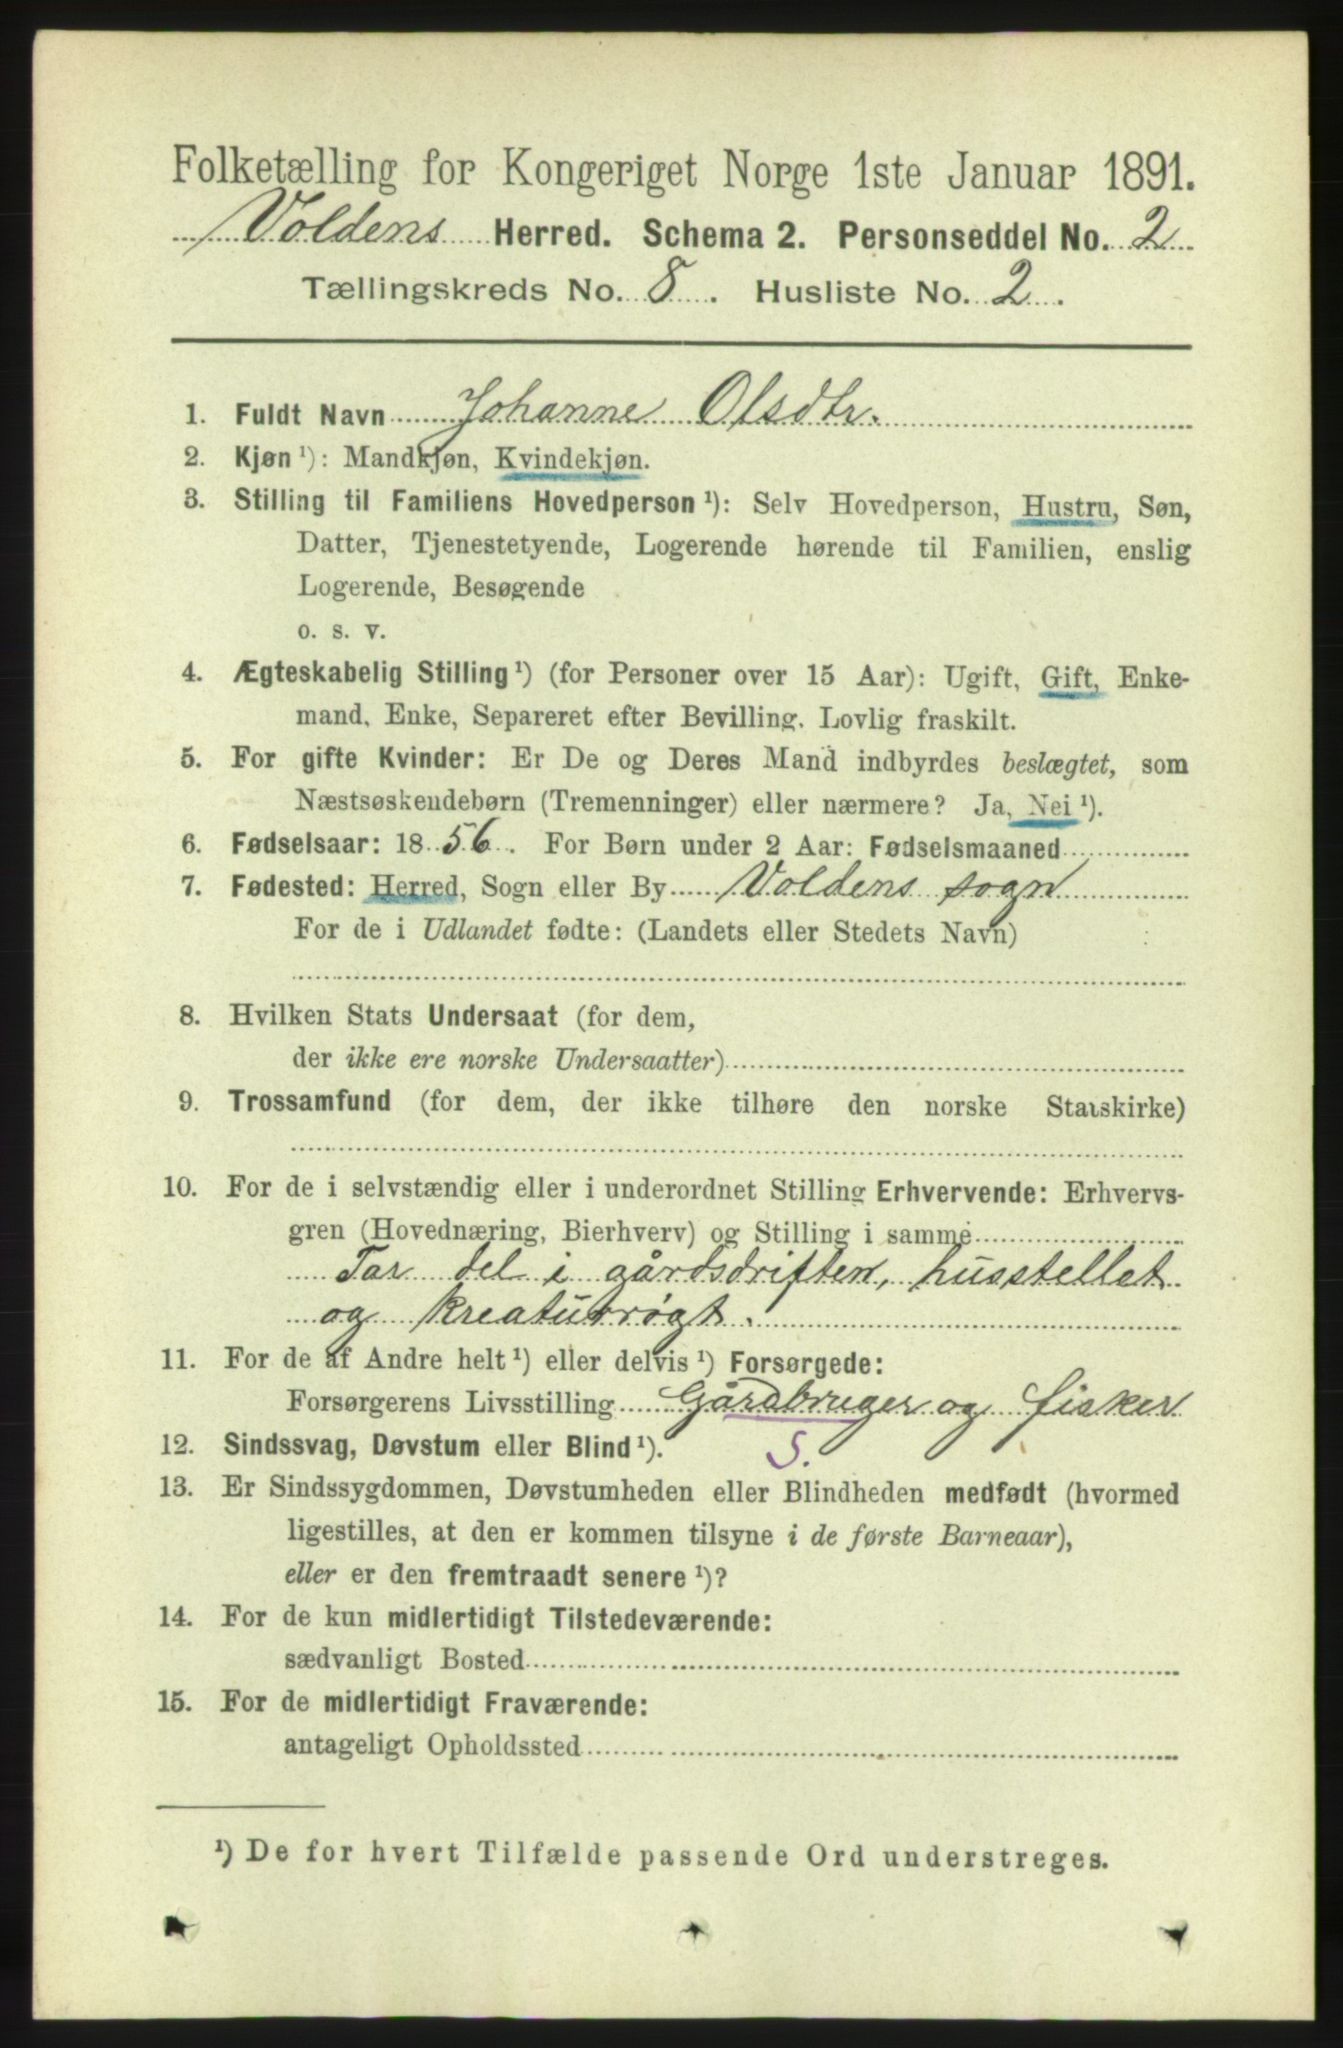 Folketælling for Kongeriget Norge 1ste Januar 1891.
Voldens Herred. Schema 2. Personseddel No. 2
Tællingskreds No. 8. Husliste No. 2.
1. Fuldt Navn Johanne Olsdtr.
2. Kjøn ¹): Mandkjøn, Kvindekjøn.
3. Stilling til Familiens Hovedperson ¹): Selv Hovedperson, Hustru, Søn,
Datter, Tjenestetyende, Logerende hørende til Familien, enslig
Logerende, Besøgende
o. s. v.
4. Ægteskabelig Stilling ¹) (for Personer over 15 Aar): Ugift, Gift, Enke-
mand, Enke, Separeret efter Bevilling. Lovlig fraskilt.
5. For gifte Kvinder: Er De og Deres Mand indbyrdes beslægtet, som
Næstsøskendebørn (Tremenninger) eller nærmere? Ja, Nei ¹).
6. Fødselsaar: 1856. For Børn under 2 Aar: Fødselsmaaned
7. Fødested: Herred, Sogn eller By Voldens sogn
For de i Udlandet fødte: (Landets eller Stedets Navn)
8. Hvilken Stats Undersaat (for dem,
der ikke ere norske Undersaatter)
9. Trossamfund (for dem, der ikke tilhøre den norske Statskirke)
10. For de i selvstændig eller i underordnet Stilling Erhvervende: Erhvervs-
gren (Hovednæring, Bierhverv) og Stilling i samme
Tar del i gårdsdriften, husstellet
og kreaturrøgt.
11. For de af Andre helt ¹) eller delvis ¹) Forsørgede:
Forsørgerens Livsstilling Gårdbruger og fisker
12. Sindssvag, Døvstum eller Blind ¹). S.
13. Er Sindssygdommen, Døvstumheden eller Blindheden medfødt (hvormed
ligestilles, at den er kommen tilsyne i de første Barneaar),
eller er den fremtraadt senere ¹)?
14. For de kun midlertidigt Tilstedeværende:
sædvanligt Bosted
15. For de midlertidigt Fraværende:
antageligt Opholdssted
¹) De for hvert Tilfælde passende Ord understreges.